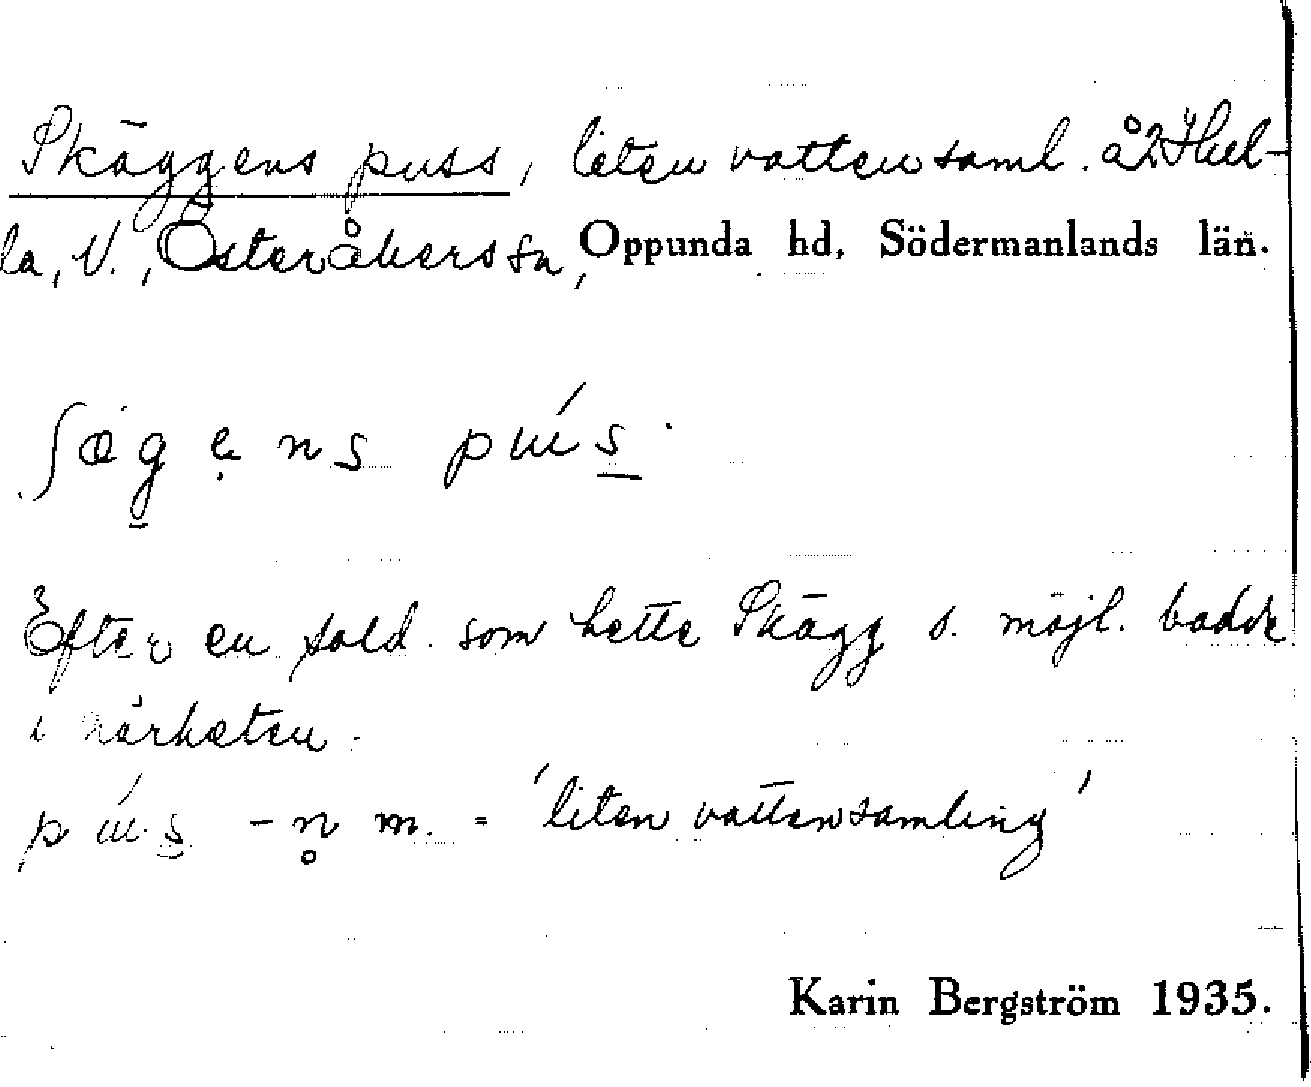 Skäggens puss, liten vattensaml. å Hul-
la, V., Österåkers sn, Oppunda hd, Södermanlands län.
ʃægẹns pu̇s.
Efter en sold. som hette Skägg o. möjl. bodde
i närheten.
pu̇s -n̥ m. = 'liten vattensamling'
Karin Bergström 1935.